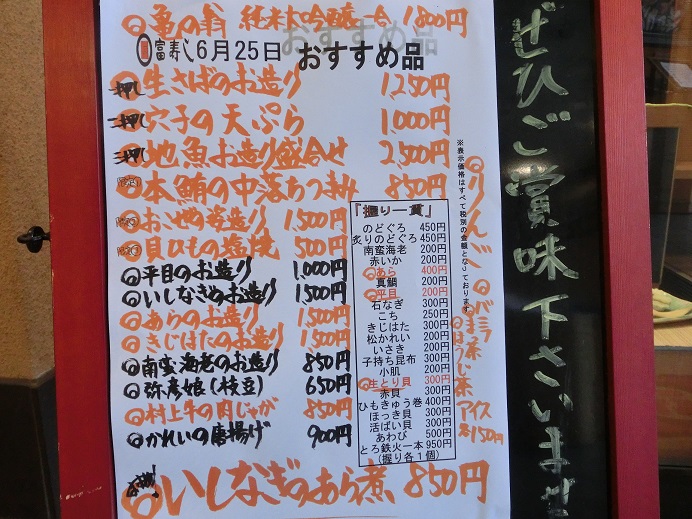 ◎亀の翁 純米大吟醸一合 1800円
富寿し6月25日 おすすめ品
押し 生さばのお造り 1,250円
押し 穴子の天ぷら 1,000円
押し 地魚お造り盛合せ 2,500円
本鮪の中落ちつまみ 850円
おこぜの姿造り 1,500円
貝ひもの塩焼 500円
◎平目のお造り 1,000円
◎いしなぎのお造り 1,500円
◎あらのお造り 1,500円
◎きじはたのお造り 1,500円
◎南蛮海老のお造り 850円
◎弥彦娘(枝豆) 650円
◎村上牛の肉じゃが 850円
◎かれいの唐揚げ 900円
◎いしなぎのあら煮 850円
『握り一貫』
のどぐろ 450円
炙りのどぐろ 450円
南蛮海老 200円
赤いか 200円
◎あら 400円
真鯛 200円
◎平目 200円
石なぎ 300円
こち 250円
きじはた 300円
松かれい 200円
いさき 200円
子持ち昆布 300円
小肌 200円
◎生とり貝 300円
赤貝 300円
ひもきゅう巻 400円
ほっき貝 300円
活ばい貝 300円
あわび 500円
とろ鉄火一本 950円
(握り各1個)
※表示価格はすべて税別の金額となっております。
◎りんご
◎バニラ
◎抹茶
◎ほうじ茶
アイス
各150円
ぜひご賞味下さいませ